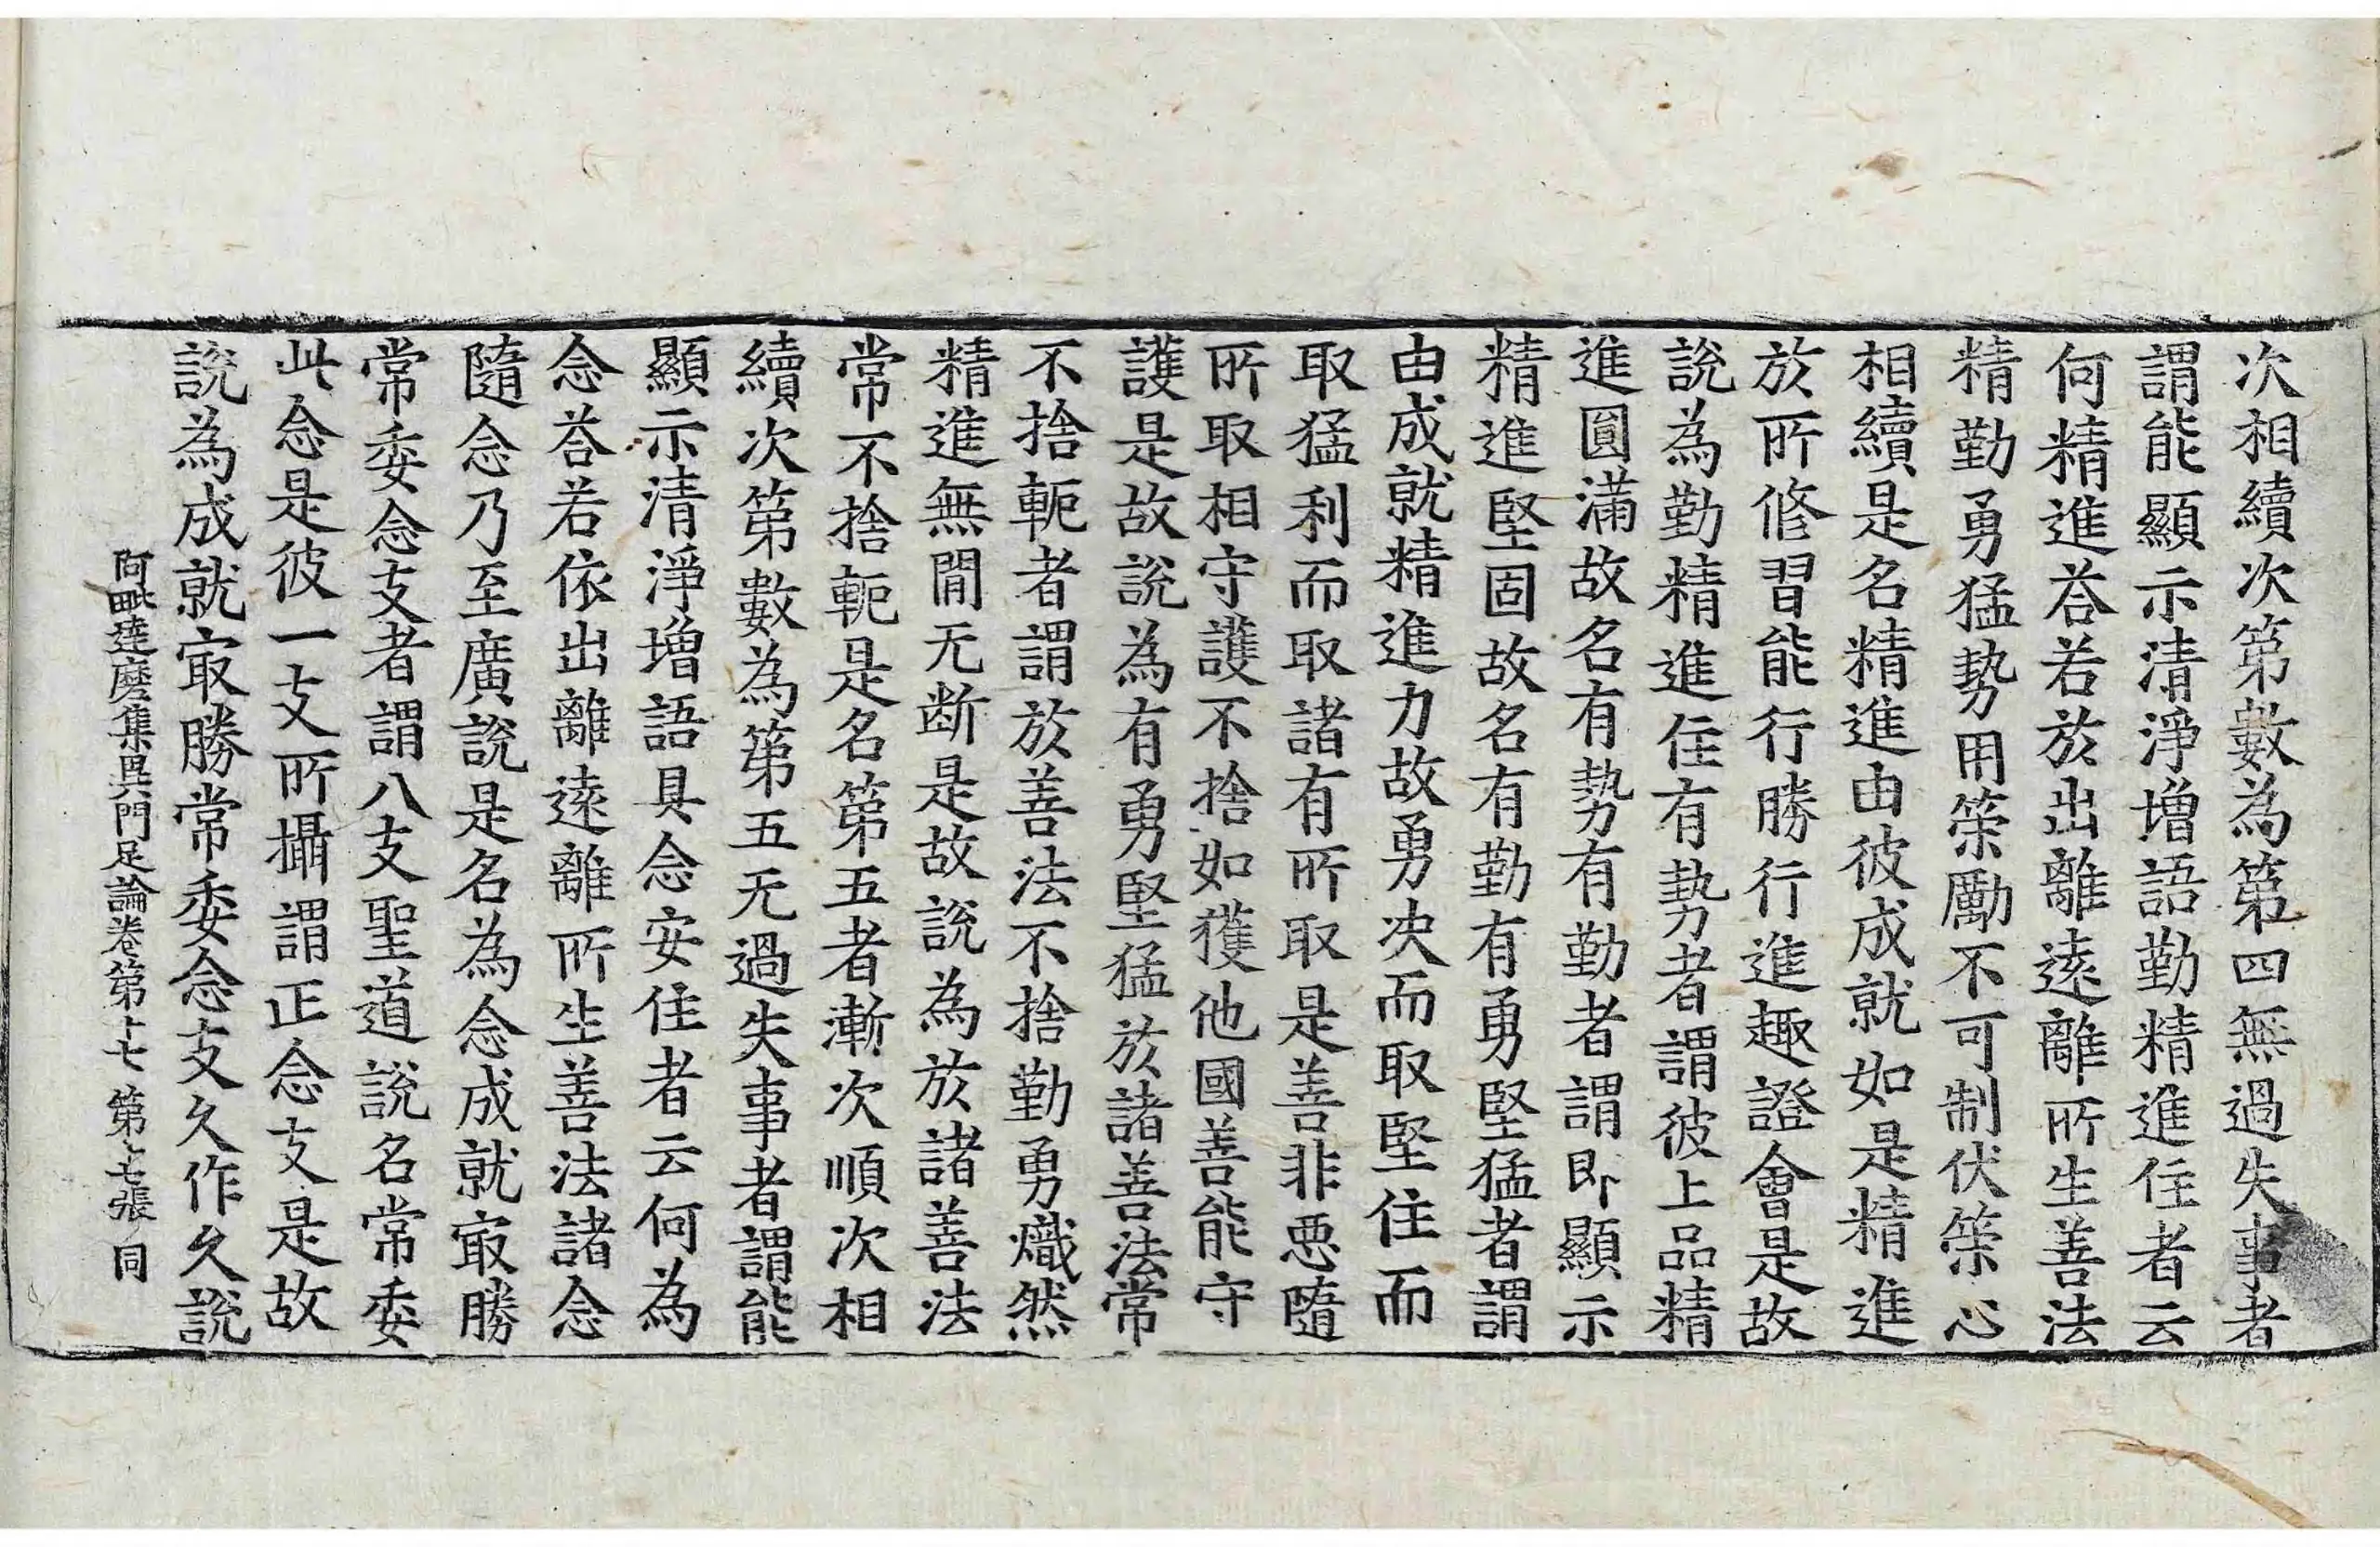 次相續次第數為第四無過失事者
謂能顯示清淨增語勤精進住者云
何精進荅若於出離遠離所生善法
精勤勇猛勢用䇿勵不可制伏䇿心
相續是名精進由彼成就如是精進
於所修習能行勝行進趣證會是故
說為勤精進住有勢者謂彼上品精
進圓滿故名有勢有勤者謂即顯示
精進堅固故名有勤有勇堅猛者謂
由成就精進力故勇决而取堅住而
取猛利而取諸有所取是善非悪隨
所取相守護不捨如獲他國善能守
護是故說為有勇堅猛於諸善法常
不捨軛者謂於善法不捨勤勇熾然
精進無閒无断是故說為於諸善法
常不捨軛是名第五者漸次順次相
續次第數為第五无過失事者謂能
顯示清淨增語具念安住者云何為
念荅若依出離遠離所生善法諸念
隨念乃至廣說是名為念成就㝡勝
常委念支者謂八支聖道說名常委
此念是彼一支所攝謂正念支是故
說為成就㝡勝常委念支久作久說
阿毗達磨集異門足論卷第十七 第七張 同